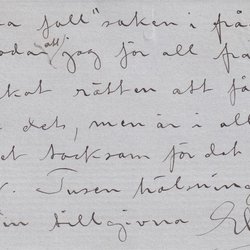 a fall" saken i frå
oda att jag för all fra
kat rätten att få
dets, men är i all
et tacksam för det
Tusen hälsning
in tillgivna